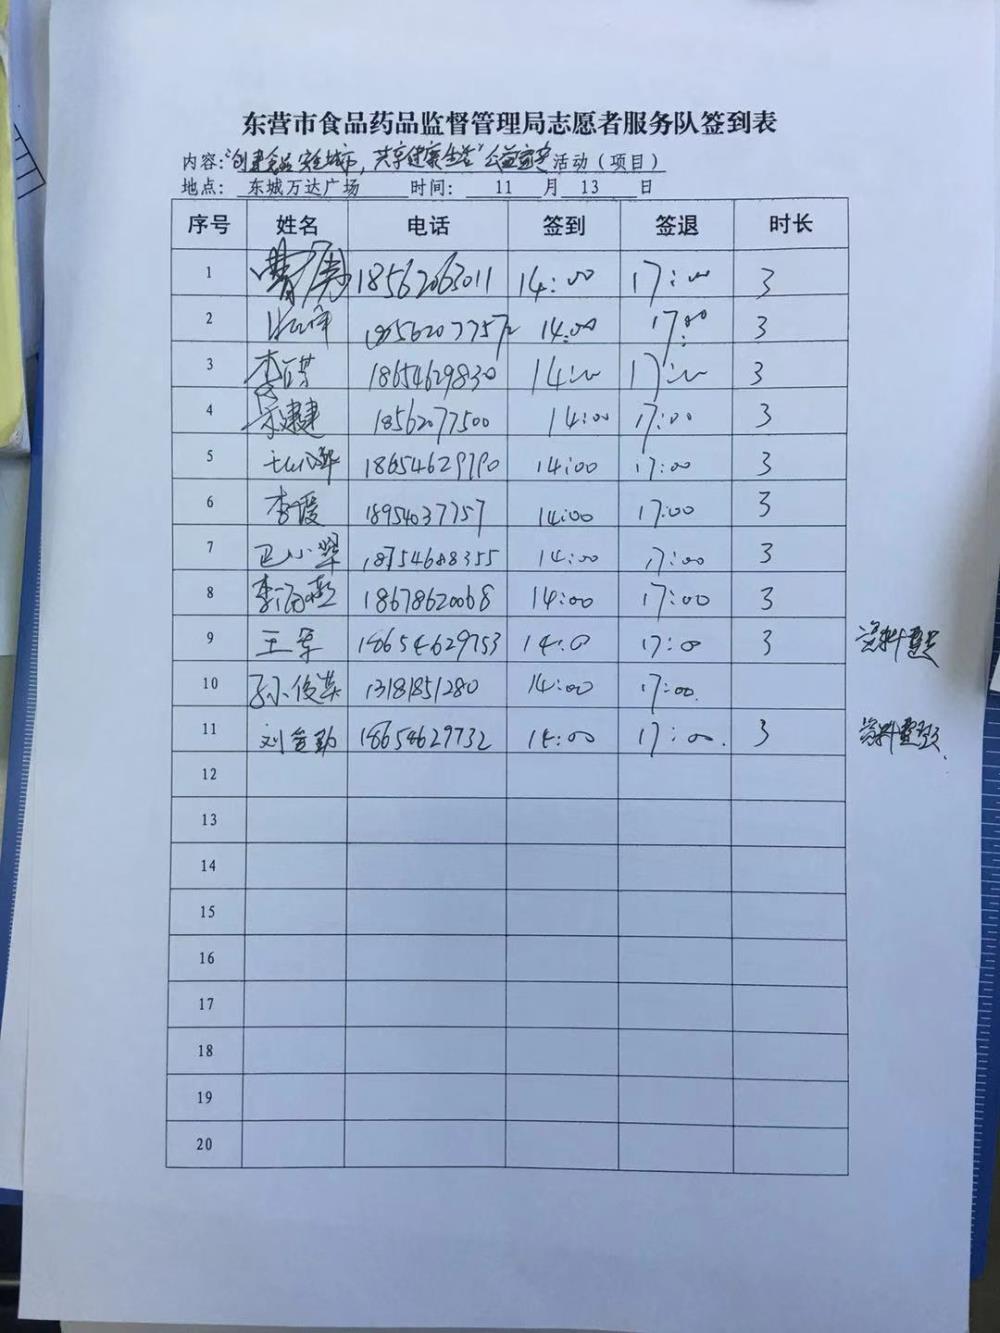 东营市食品药品监督管理局志愿者服务队签到表
内容:"创建食品安全城市,共享健康生活"公益宣传活动(项目)
地点: 东城万达广场 时间: 11 月 13 日
序号 姓名 电话 签到 签退 时长
1 18562063011 14:00 17:00 3
2 18562077572 14:00 17:00 3
3 李 18654629830 14:00 17:00 3
4 18562077500 14:00 17:00 3
5 18654629790 14:00 17:00 3
6 李 18954037757 14:00 17:00 3
7 18754688355 14:00 17:00 3
8 李 18678620068 14:00 17:00 3
9 王军 18654629753 14:00 17:00 3 资料
10 孙俊英 13181851280 14:00 17:00
11 刘 18654629732 14:00 17:00. 3 资料
12
13
14
15
16
17
18
19
20